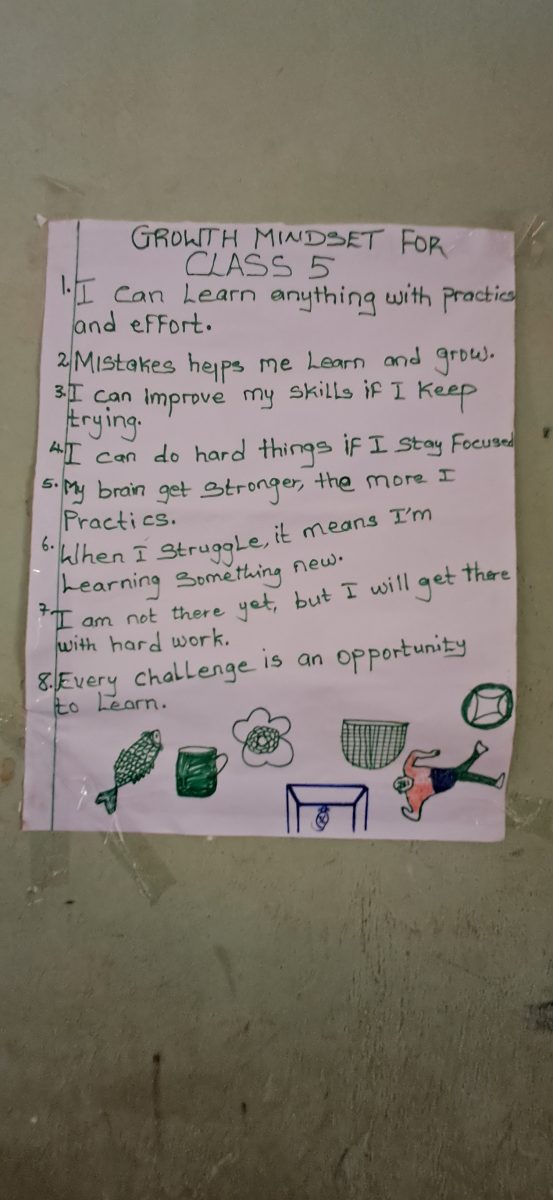 GROWTH MINDSET FOR
CLASS 5
1. I can Learn anything with practics
and effort.
2 Mistakes helps me Learn and grow.
3. I can Improve my skills if I Keep
trying.
4. I can do hard things if I Stay Focused
5. My brain get Stronger, the more I
Practics.
6. When I Struggle, it means I'm
Learning Something new.
7. I am not there yet, but I will get there
with hard work.
8. Every challenge is an opportunity
to Learn.